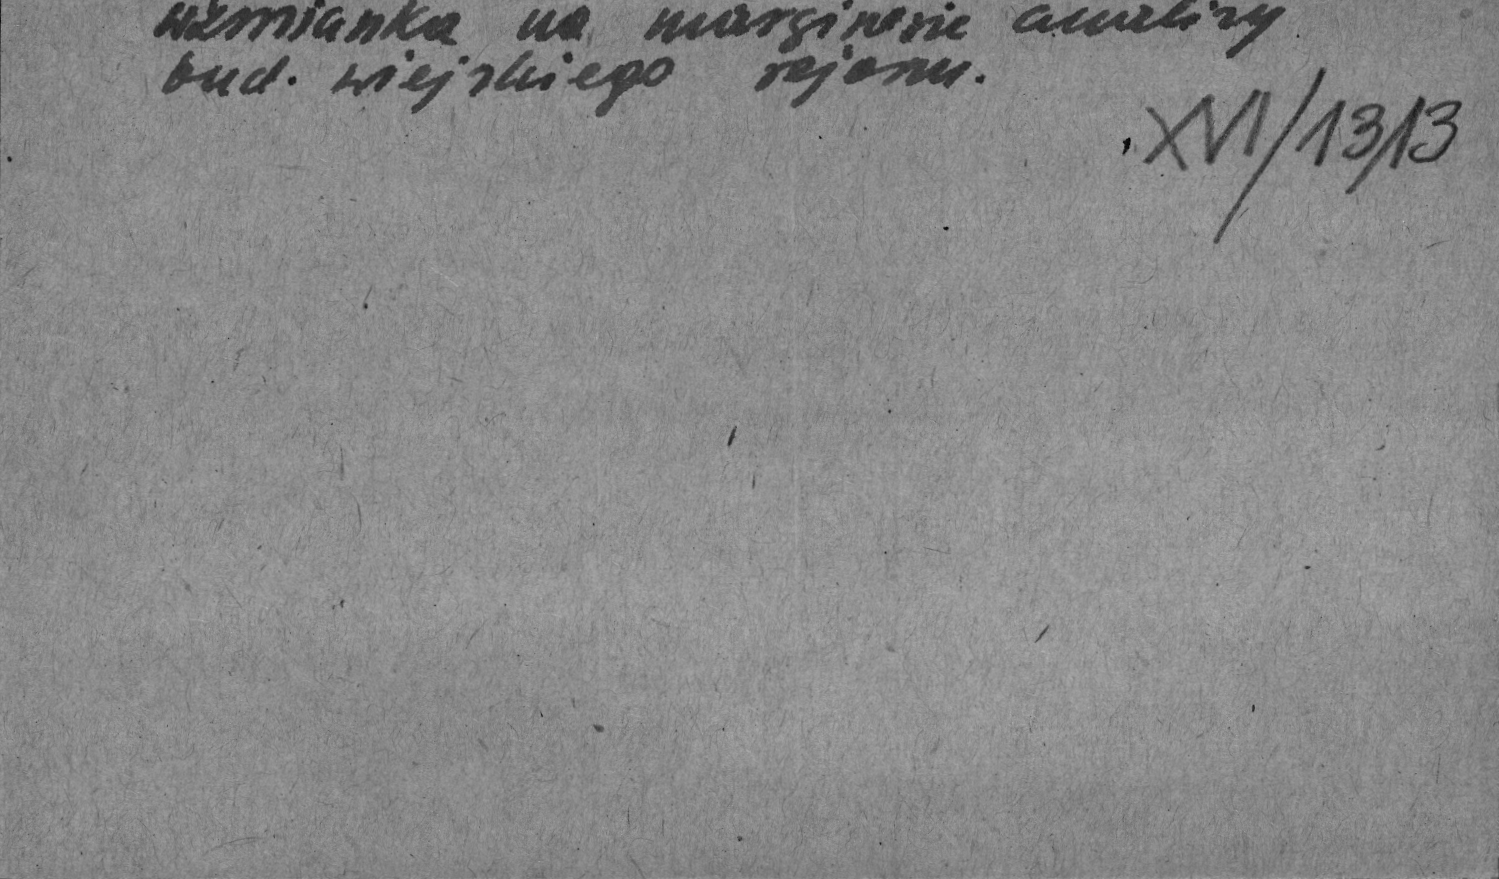 wzmianka na marginesie analizy
bud. wiejskiego rejonu.
XVI/1313